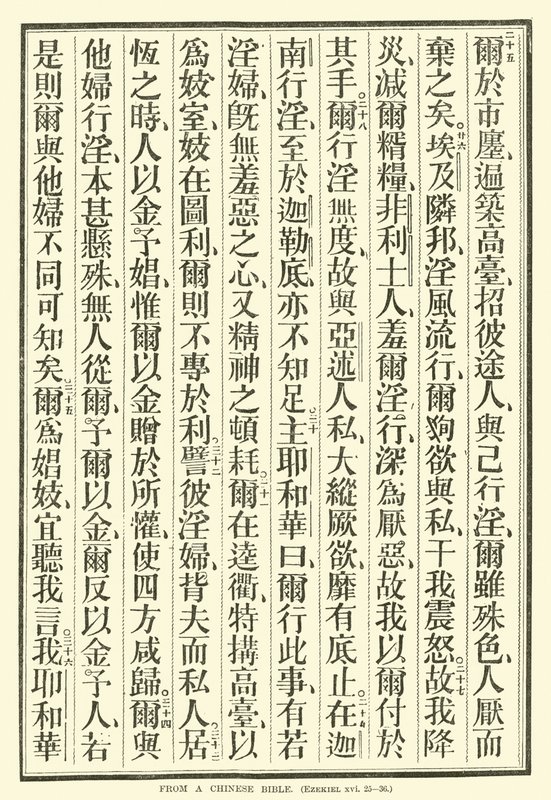 二十五爾於市廛、遍築高臺、招彼途人、與己行淫、爾雖殊色、人厭而
棄之矣。廿六埃及隣邦、淫風流行、爾狥欲與私、干我震怒。二十七故我降
災、減爾糈糧、非利士人、羞爾淫行、深爲厭惡、故我以爾付於
其手。二十八爾行淫無度、故與亞述人私、大縱厥欲、靡有底止。二十九在迦
南行淫、至於迦勒底、亦不知足。三十主耶和華曰、爾行此事、有若
淫婦、旣無羞惡之心、又精神之頓耗。三十一爾在逵衢、特搆高臺、以
爲妓室、妓在圖利、爾則不專於利。三十二譬彼淫婦、背夫而私人。三十三居
恆之時、人以金予娼、惟爾以金贈於所懽、使四方咸歸。三十四爾與
他婦行淫、本甚懸殊、無人從爾、予爾以金、爾反以金予人、若
是則爾與他婦不同可知矣。三十五爾爲娼妓、宜聽我言。三十六我耶和華
FROM A CHINESE BIBLE. (EZEKIEL xvi. 25—36.)